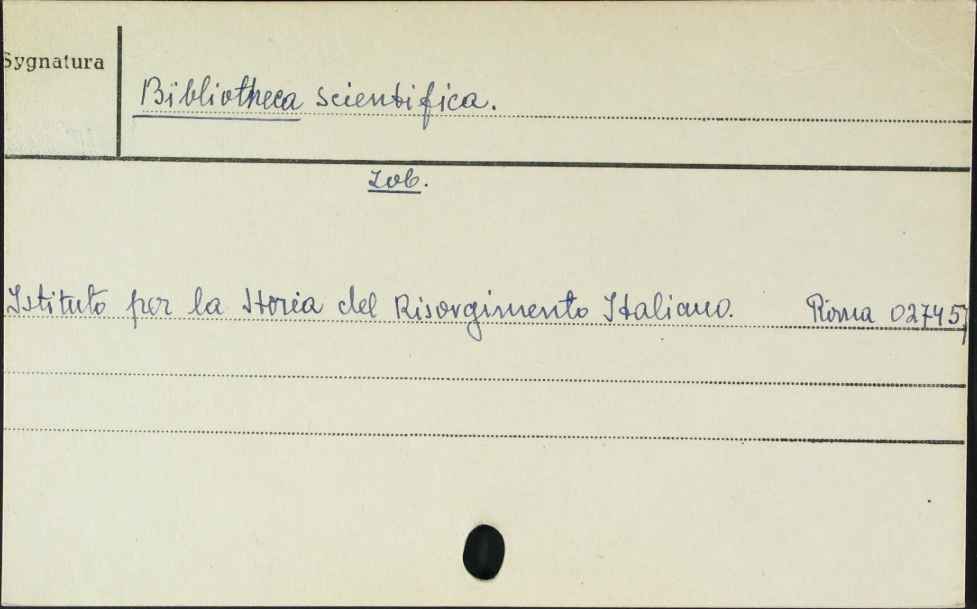 Sygnatura
Bibliotheca scientifica.
Zob.
Istituto per la Storia del Risorgimento Italiano. Roma 02745